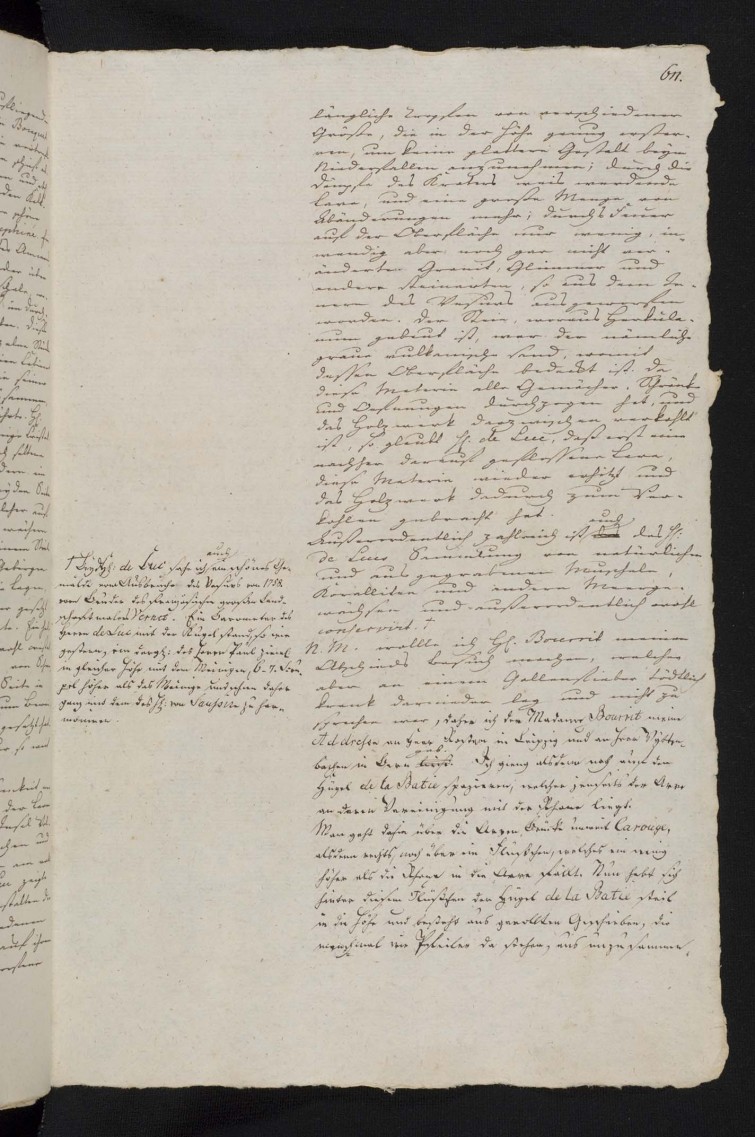 611.
längliche Tropfen von verschiedener
Größe, die in der Höhe genug erstar-
ren, um keine plattere Gestalt beym
Niederfallen anzunehmen; durch die
Dämpfe des Kraters weis werdende
Lava, und eine große Menge von
Abänderungen mehr; durchs Feuer
auf der Oberfläche nur wenig, in-
wendig aber noch gar nicht ver-
änderten Granit, Glimmer und
andere Steinarten, so aus dem In-
nern des Vesuvs ausgeworfen
worden. Der Stein, woraus Herkula-
num gebaut ist, war der nämliche
graue vulkanische Sand, womit
dessen Oberfläche bedeckt ist. Da
diese Materie alle Gemächer, Schränke
und Oefnungen durchzogen hat, und
das Holzwerk dazwischen verkohlt
ist, so glaubt H. de Luc, daß erst eine
nachher darauf geflossene Lava,
diese Materie wieder erhitzt und
das Holzwerk dadurch zum Ver-
kohlen gebracht hat.
Außerordentlich zahlreich ist auch des H.
de Lucs Sammlung von natürlichen
und ausgegrabenen Muscheln,
Koralliten und andern Meerge-
wächsen und außerordentlich wohl
conservirt. †
N. M. wollte ich H. Bourrit meinen
Abschieds Besuch machen, welcher
aber an einem Gallenfieber tödtlich
krank darnieder lag und nicht zu
sprechen war, daher ich der Madame Bourrit meine
Addresse an Herr in Leipzig und an Herr Wytten-
bachen in Bern gab. Ich gieng alsdenn noch auf den
Hügel de la Batie spazieren, welcher jenseits der Arve
an deren Vereinigung mit der Rhone liegt.
Man geht dahin über die Arven Brücke unweit Carouge,
alsdenn rechts, noch über ein Flüßchen, welches ein wenig
höher als die Rhone in die Arve fällt. Nun hebt sich
hinter diesem Flüßchen der Hügel de la Batie steil
in die Höhe und besteht aus gerollten Geschieben, die
manchmal wie Pfeiler da stehen, aus zusammen,
† Bey H. de Luc sahe ich auch ein schönes Ge-
mälde vom Ausbruche des Vesuvs von 1758.
vom Bruder des französischen großen Land-
schaftmalers Vernet. Ein Barometer des
Herrn de Luc mit der Kugel stand, so wie
gestern, ein dergl. des Herrn Paul
in gleicher Höhe mit dem Meinigen,
höher als das Meinige und
ganz mit dem des H. von Saussure